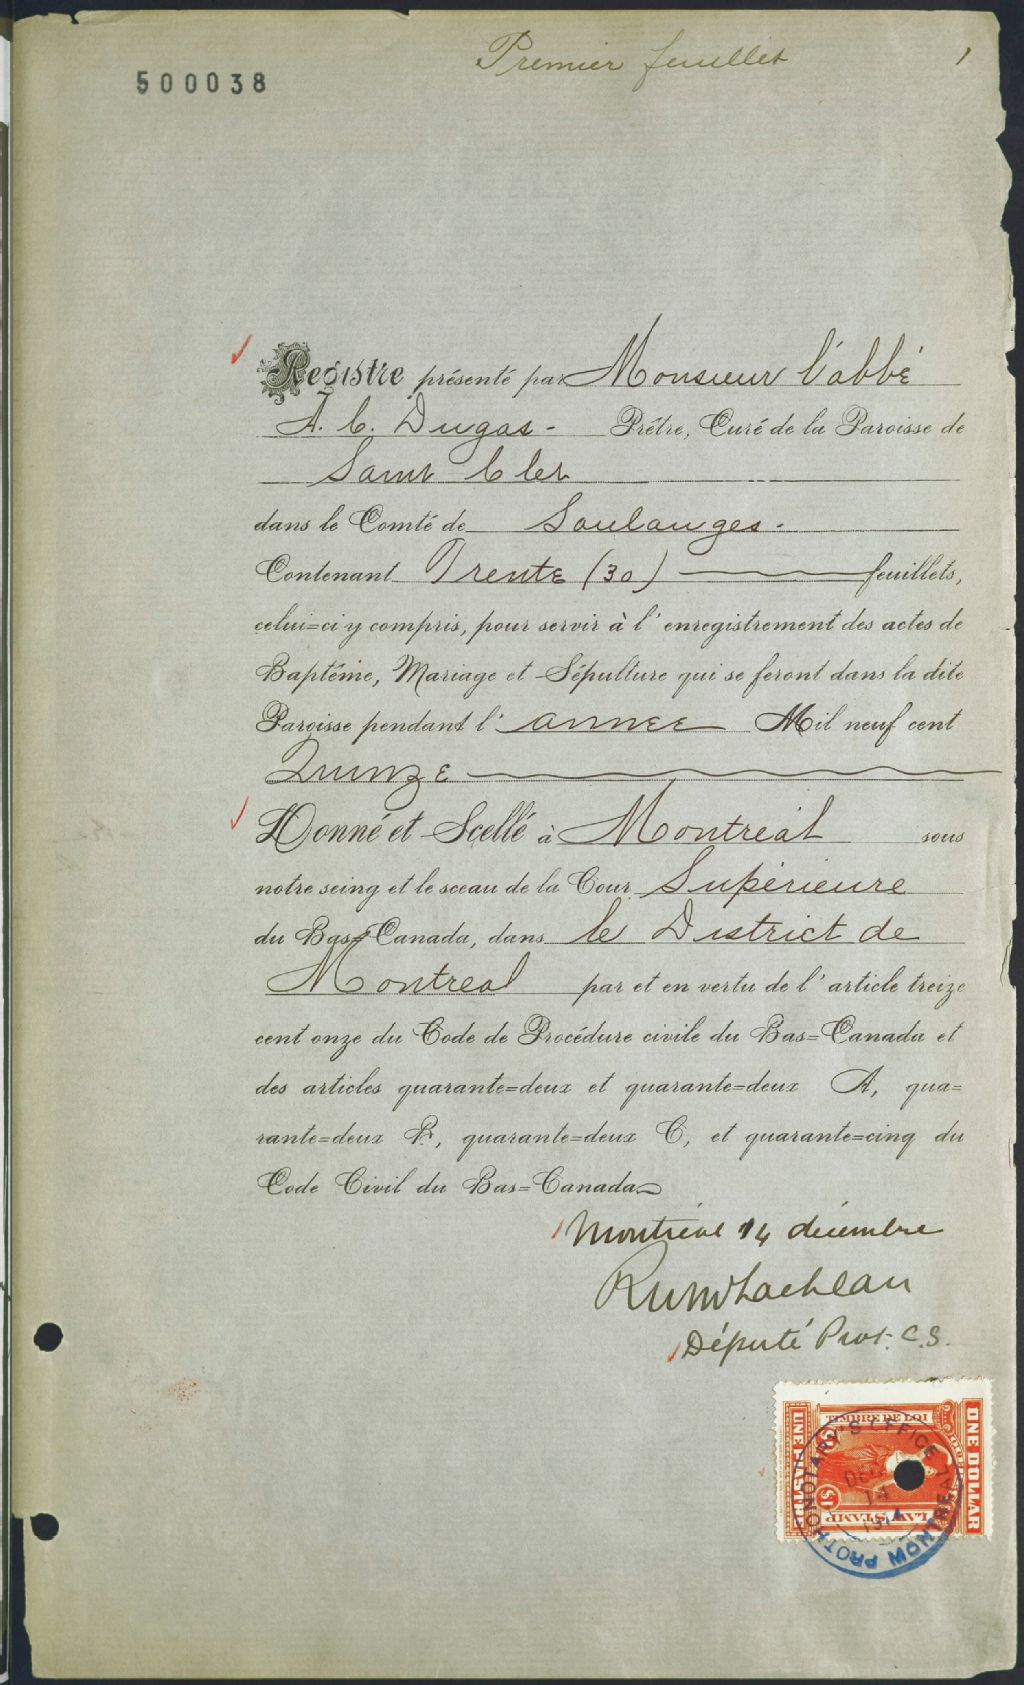 Premier feuillet 1
500038
Registre présenté par Monsieur l'abbé
A. C. Dugas - Prêtre, Curé de la Paroisse de
Saint Clet
dans le Comté de Soulanges -
Contenant Trente (30) feuillets,
celui=ci y compris, pour servir à l'enregistrement des actes de
Baptême, Mariage et Sépulture qui se feront dans la dite
Paroisse pendant l'année Mil neuf cent
Quinze
Donné et Scellé à Montréal sous
notre seing et le sceau de la Cour Supérieure
du Bas=Canada, dans le District de
Montreal par et en vertu de l'article treize
cent onze du Code de Procédure civile du Bas=Canada et
des articles quarante=deux et quarante=deux A, qua=
rante=deux B, quarante=deux C, et quarante=cinq du
Code Civil du Bas=Canada
Montréal 14 décembre
Député Prot. C.S.
ONE DOLLAR
TIMBRE DE LOI
LAW STAMP
UNE PIASTRE
$1
PROTHONOTARY'S OFFICE
DEC
14
1914
MONTREAL